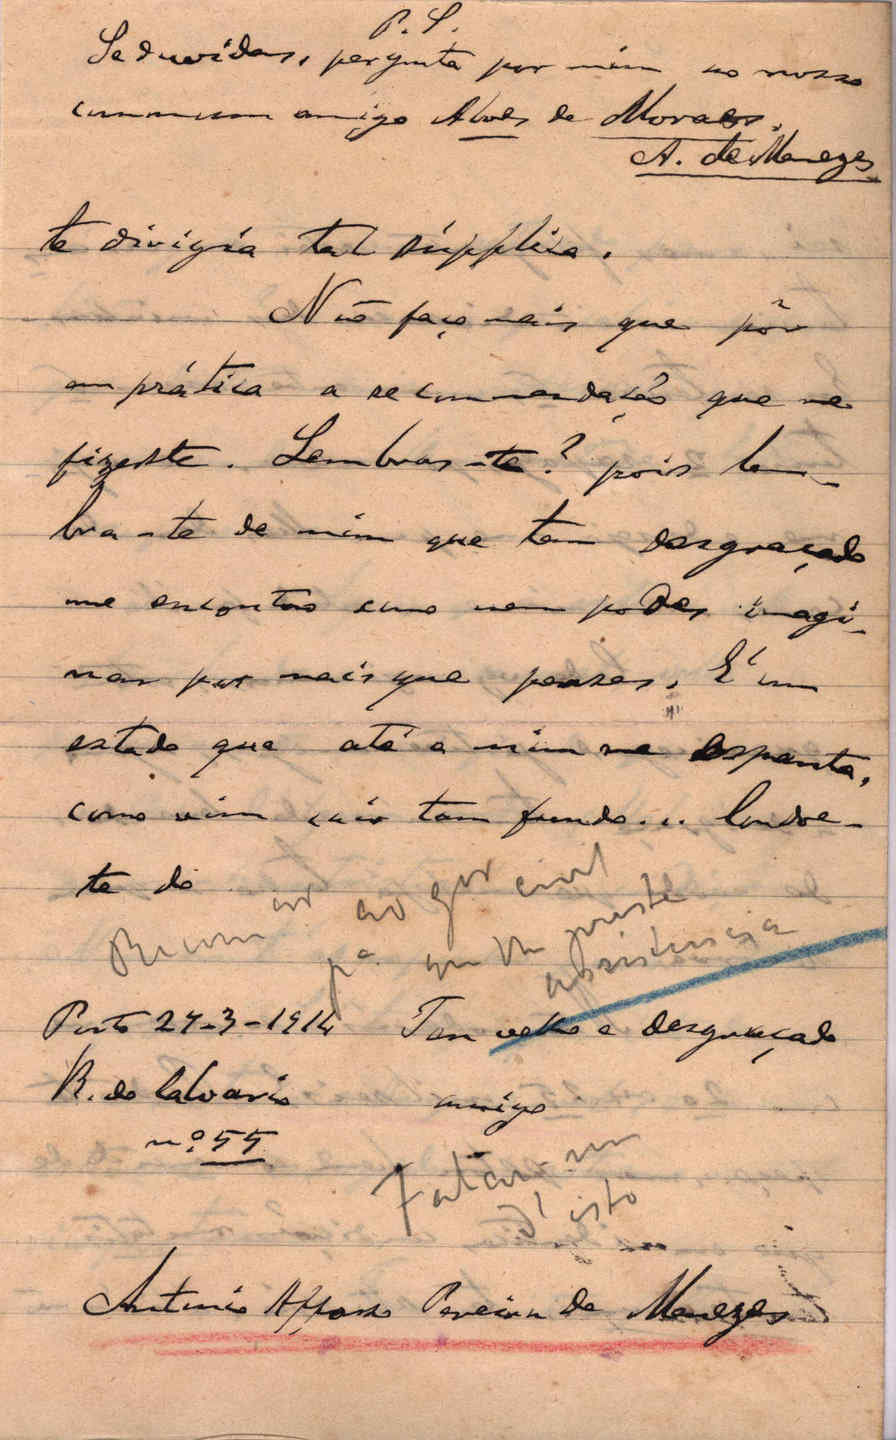 P. S.
Se duvidas, pergunta por mim ao nosso
commum amigo Alves de Moraes.
A. de Menezes
te dirigia tal súpplica.
Não faço mais que pôr
em prática a recommendação que me
fizeste. Lembras-te? pois lem-
bra-te de mim que tam desgraçado
me encontro como nem podes imagi-
nar por mais que penses. É um
estado que até a mim me espanta,
como vim cair tam fundo... Condoe-
te do
Recomdar ao Gor civil
pa. que lhe preste
assistencia
Porto 27-3-1914 Teu velho e desgraçado
R. do Calvario amigo
nº 55
Falar-me
d'isto
Antonio Affonso Pereira de Menezes